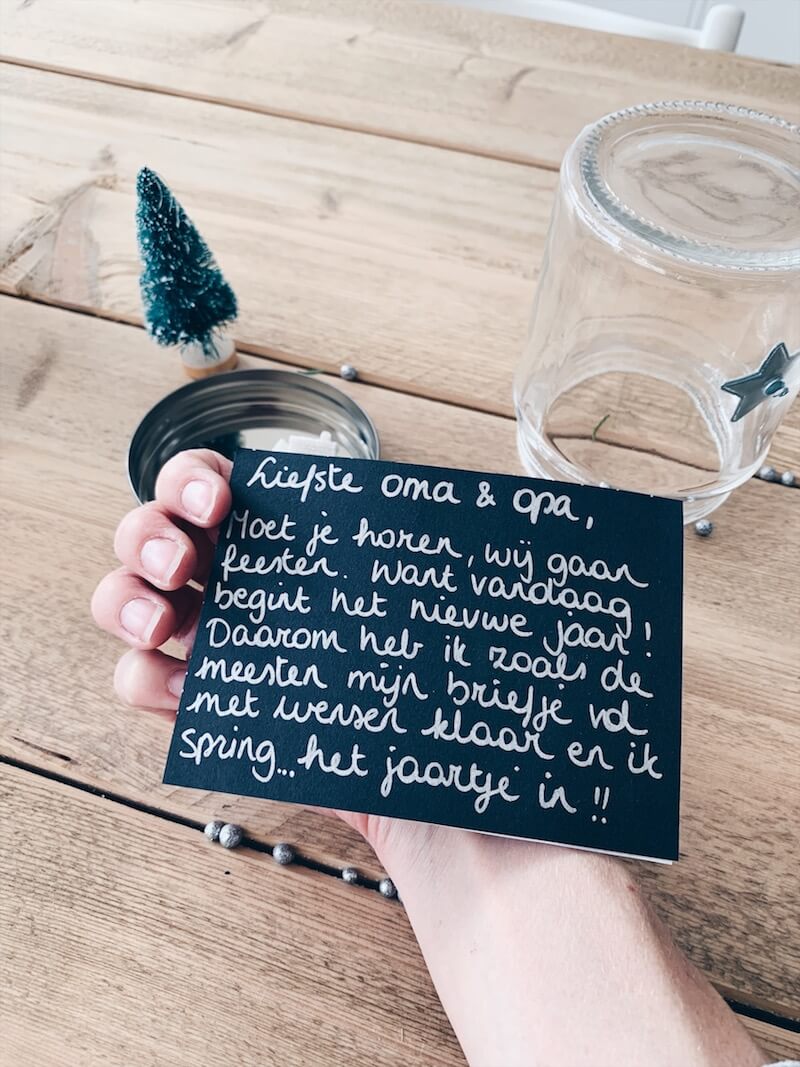 Liefste oma & opa,
Moet je horen, wij gaan
feesten. Want vandaag
begint het nieuwe jaar!
Daarom heb ik zoals de
meesten mijn briefje vol
met wensen klaar en ik
spring...het jaartje in !!